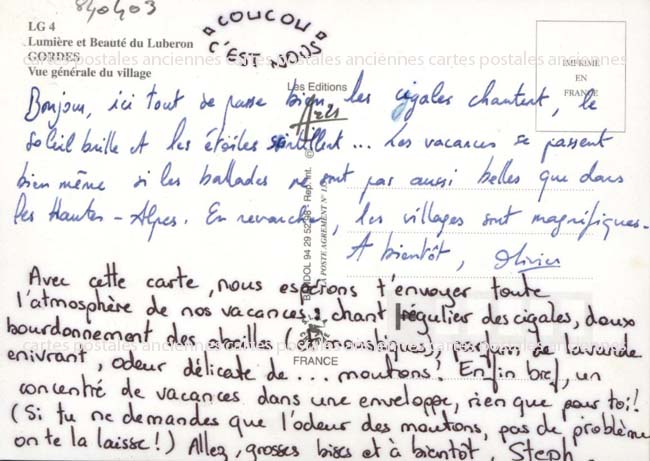 840403
LG 4
Lumière et Beauté du Luberon
GORDES
Vue générale du village
COUCOU
C'EST NOUS
IMPRIMÉ
EN
FRANCE
Les Editions
Aris
cartes postales anciennes cartes postales anciennes cartes postales anciennes
Bonjour, ici tout se passe bien les cigales chantent, le
soleil brille et les étoiles scintillent ... Les vacances se passent
bien même si les ballades ne sont pas aussi belles que dans
les Hautes-Alpes. En revanche, les villages sont magnifiques.
A bientôt, Olivier
BANDOL 94 29 52 96 - Rep. Int.
POSTE AGREMENT N°
Avec cette carte, nous espérons t'envoyer toute
l'atmosphère de nos vacances : chant régulier des cigales, doux
bourdonnement des abeilles ( parfum de lavande
cartes postales anciennes cartes postales anciennes cartes postales anciennes
enivrant, odeur délicate de ... moutons! Enfin bref, un
FRANCE
concentré de vacances dans une enveloppe, rien que pour toi!
(Si tu ne demandes que l'odeur des moutons, pas de problème
on te la laisse!) Allez, grosses bises et à bientôt, Steph.